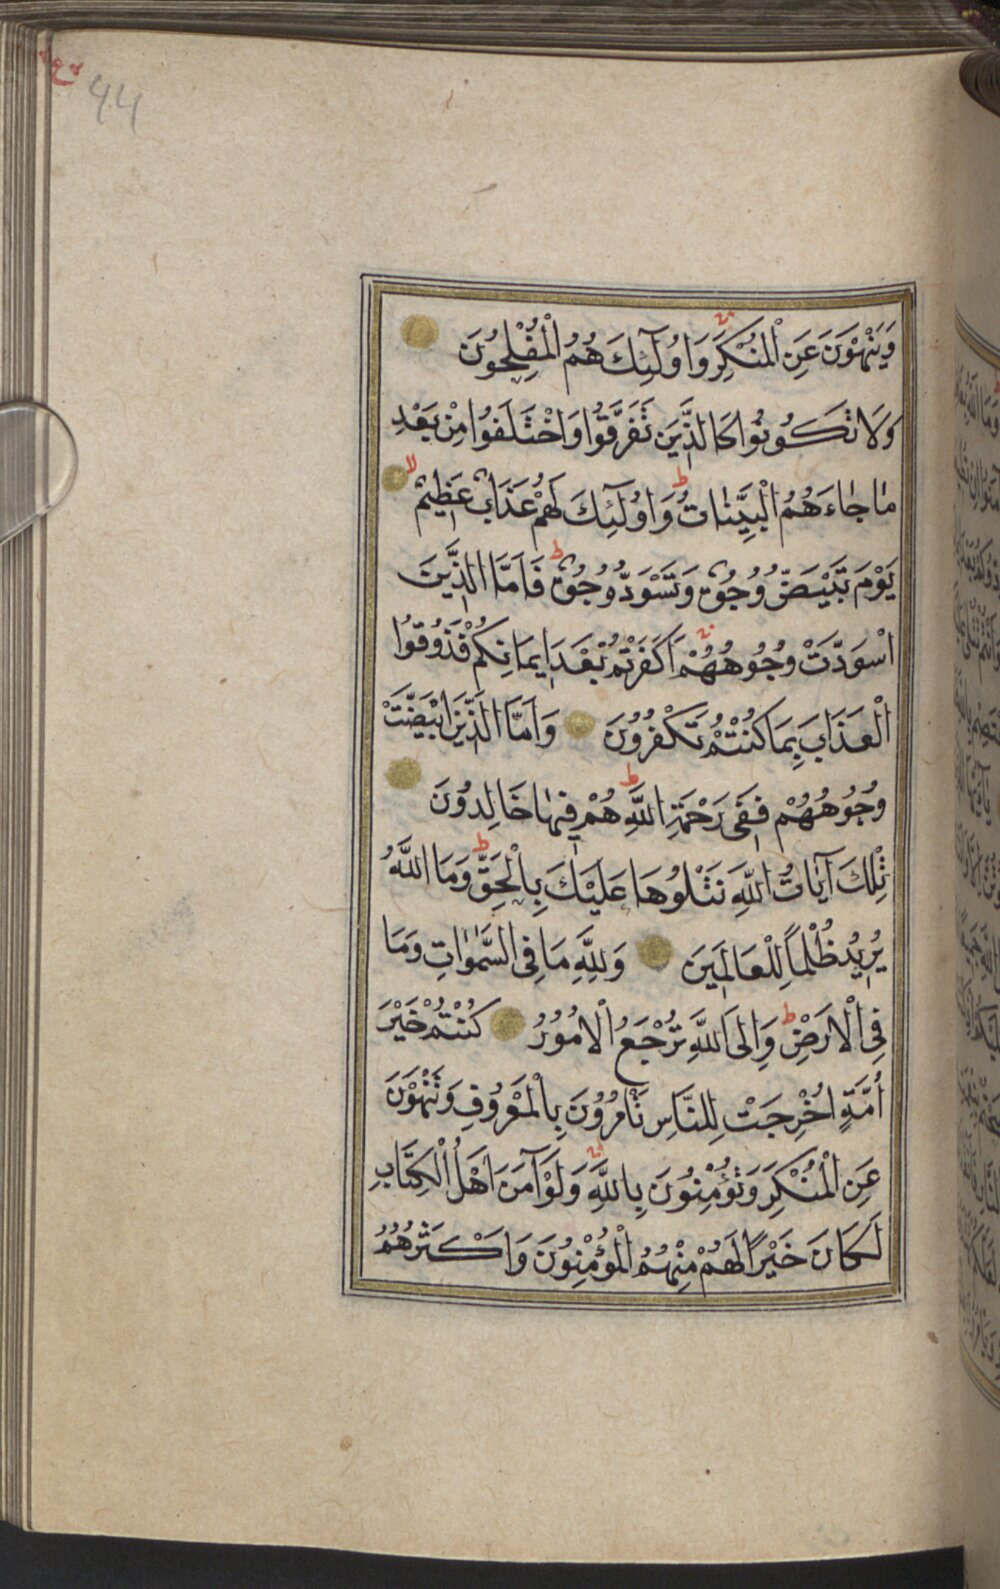 44
وَيَنْهَوْنَ عَنِ الْمُنْكَرِ وَاُولٰٓئِكَ هُمُ الْمُفْلِحُونَ
وَلَا تَكُونُوا كَالَّذِينَ تَفَرَّقُوا وَاخْتَلَفُوا مِنْ بَعْدِ
مَا جَاءَهُمُ الْبَيِّنَاتُ ط وَاُولٰٓئِكَ لَهُمْ عَذَابٌ عَظِيمٌ لا
يَوْمَ تَبْيَضُّ وُجُوهٌ وَتَسْوَدُّ وُجُوهٌ ط فَاَمَّا الَّذِينَ
اسْوَدَّتْ وُجُوهُهُمْ اَكَفَرْتُمْ بَعْدَ اِيمَانِكُمْ فَذُوقُوا
الْعَذَابَ بِمَا كُنْتُمْ تَكْفُرُونَ وَاَمَّا الَّذِينَ ابْيَضَّتْ
وُجُوهُهُمْ فَفِى رَحْمَةِ اللّٰهِ ط هُمْ فِيهَا خَالِدُونَ
تِلْكَ آيَاتُ اللّٰهِ نَتْلُوهَا عَلَيْكَ بِالْحَقِّ ط وَمَا اللّٰهُ
يُرِيدُ ظُلْماً لِلْعَالَمِينَ وَلِلّٰهِ مَا فِى السَّمٰوَاتِ وَمَا
فِى الْاَرْضِ ط وَاِلَى اللّٰهِ تُرْجَعُ الْاُمُورُ كُنْتُمْ خَيْرَ
اُمَّةٍ اُخْرِجَتْ لِلنَّاسِ تَأْمُرُونَ بِالْمَعْرُوفِ وَتَنْهَوْنَ
عَنِ الْمُنْكَرِ وَتُؤْمِنُونَ بِاللّٰهِ وَلَوْ آمَنَ اَهْلُ الْكِتَابِ
لَكَانَ خَيْرًا لَهُمْ مِنْهُمُ الْمُؤْمِنُونَ وَاَكْثَرُهُمُ